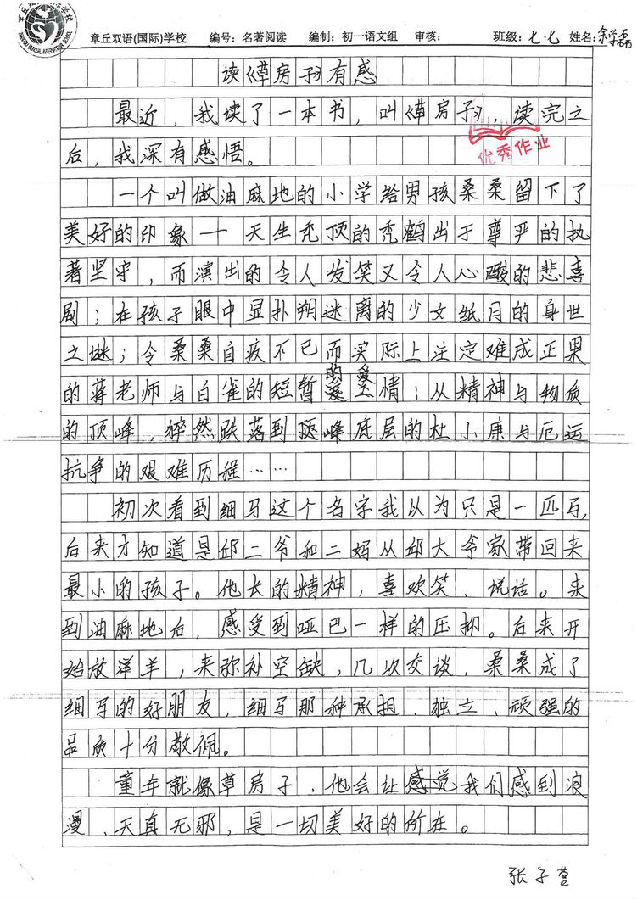 章丘双语(国际)学校 编号：名著阅读 编制：初一语文组 审核： 班级：七七 姓名：
读《草房子》有感
最近，我读了一本书，叫《草房子》，读完之
优秀作业
后，我深有感悟。
一个叫做油麻地的小学给男孩桑桑留下了
美好的印象——天生秃顶的秃鹤出于尊严的执
着坚守，而演出的令人发笑又令人心酸的悲喜
剧；在孩子眼中显扑朔迷离的少女纸月的身世
之谜；令桑桑自疚不已而实际上注定难成正果
的蒋老师与白雀的短暂的爱情；从精神与物质
的顶峰，猝然跌落到顶峰底层的杜小康与厄运
抗争的艰难历程……
初次看到细马这个名字我以为只是一匹马，
后来才知道是邱二爷和二妈从邱大爷家带回来
最小的孩子。他长的精神，喜欢笑、说话。来
到油麻地后，感受到哑巴一样的压抑。后来开
始放洋羊，来弥补空缺，几次交谈，桑桑成了
细马的好朋友，细马那种承担、独立、顽强的
品质十分敬佩。
童年就像草房子，他会让感觉我们感到浪
漫、天真无邪，是一切美好的所在。
张子萱